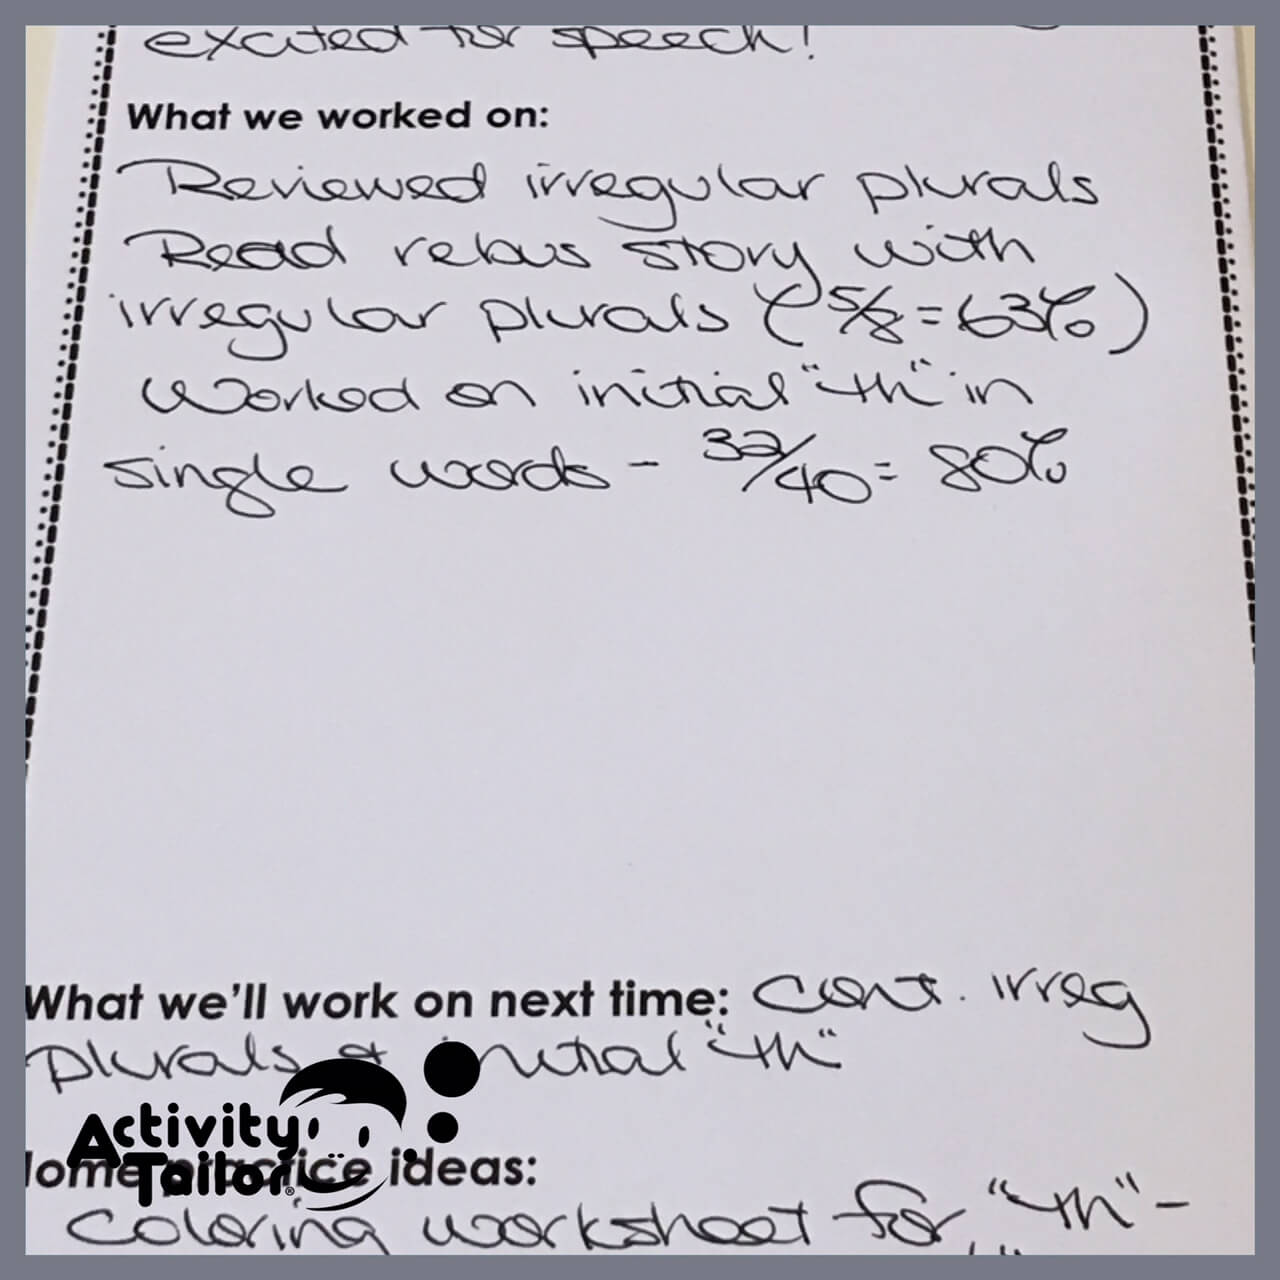 excited for speech!
What we worked on:
Reviewed irregular plurals
Read rebus story with
irregular plurals (5/8 = 63%)
Worked on initial "th" in
single words - 32/40 = 80%
What we'll work on next time: cont. irreg
plurals & initial "th"
Activity
Tailor®
Home practice ideas:
Coloring worksheet for "th" -